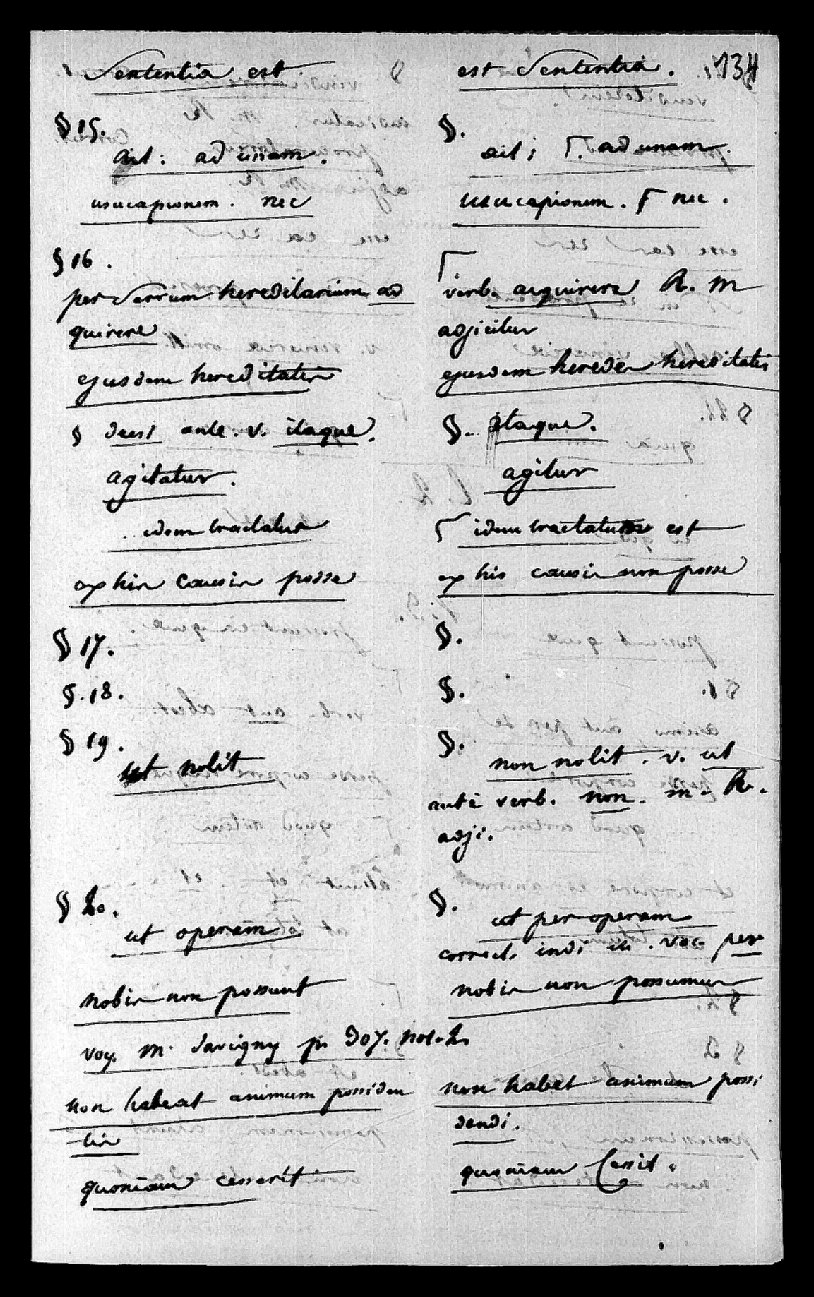 Sententia est
§ 15.
ait: ad unam.
usucapionem. nec
§ 16.
per servum hereditarium ad
quirere
ejusdem hereditatis
§ deest ante. v. itaque.
agitatur.
idem tractatur
ex his causis posse
§ 17.
§. 18.
§ 19.
ut nolit
§ 20.
ut operam
nobis non possunt
voy. m. Savigny p. 307. not. 2.
non habeat animum possiden
tis
quoniam cesserit
est Sententia.
§.
ait; Γ. ad unam.
usucapionem. Γ nec.
Γ
verb. acquirere R. m
adjicitur
ejusdem heredes hereditatis
§. itaque.
agitur
Γ idem tractatus est
ex his causis non posse
§.
§.
§.
non nolit. v. ut
ante verb. non. m. R.
adji.
§.
ut per operam
correct. indi voc per
nobis non possumus
non habet animum possi
dendi.
quoniam cessit.